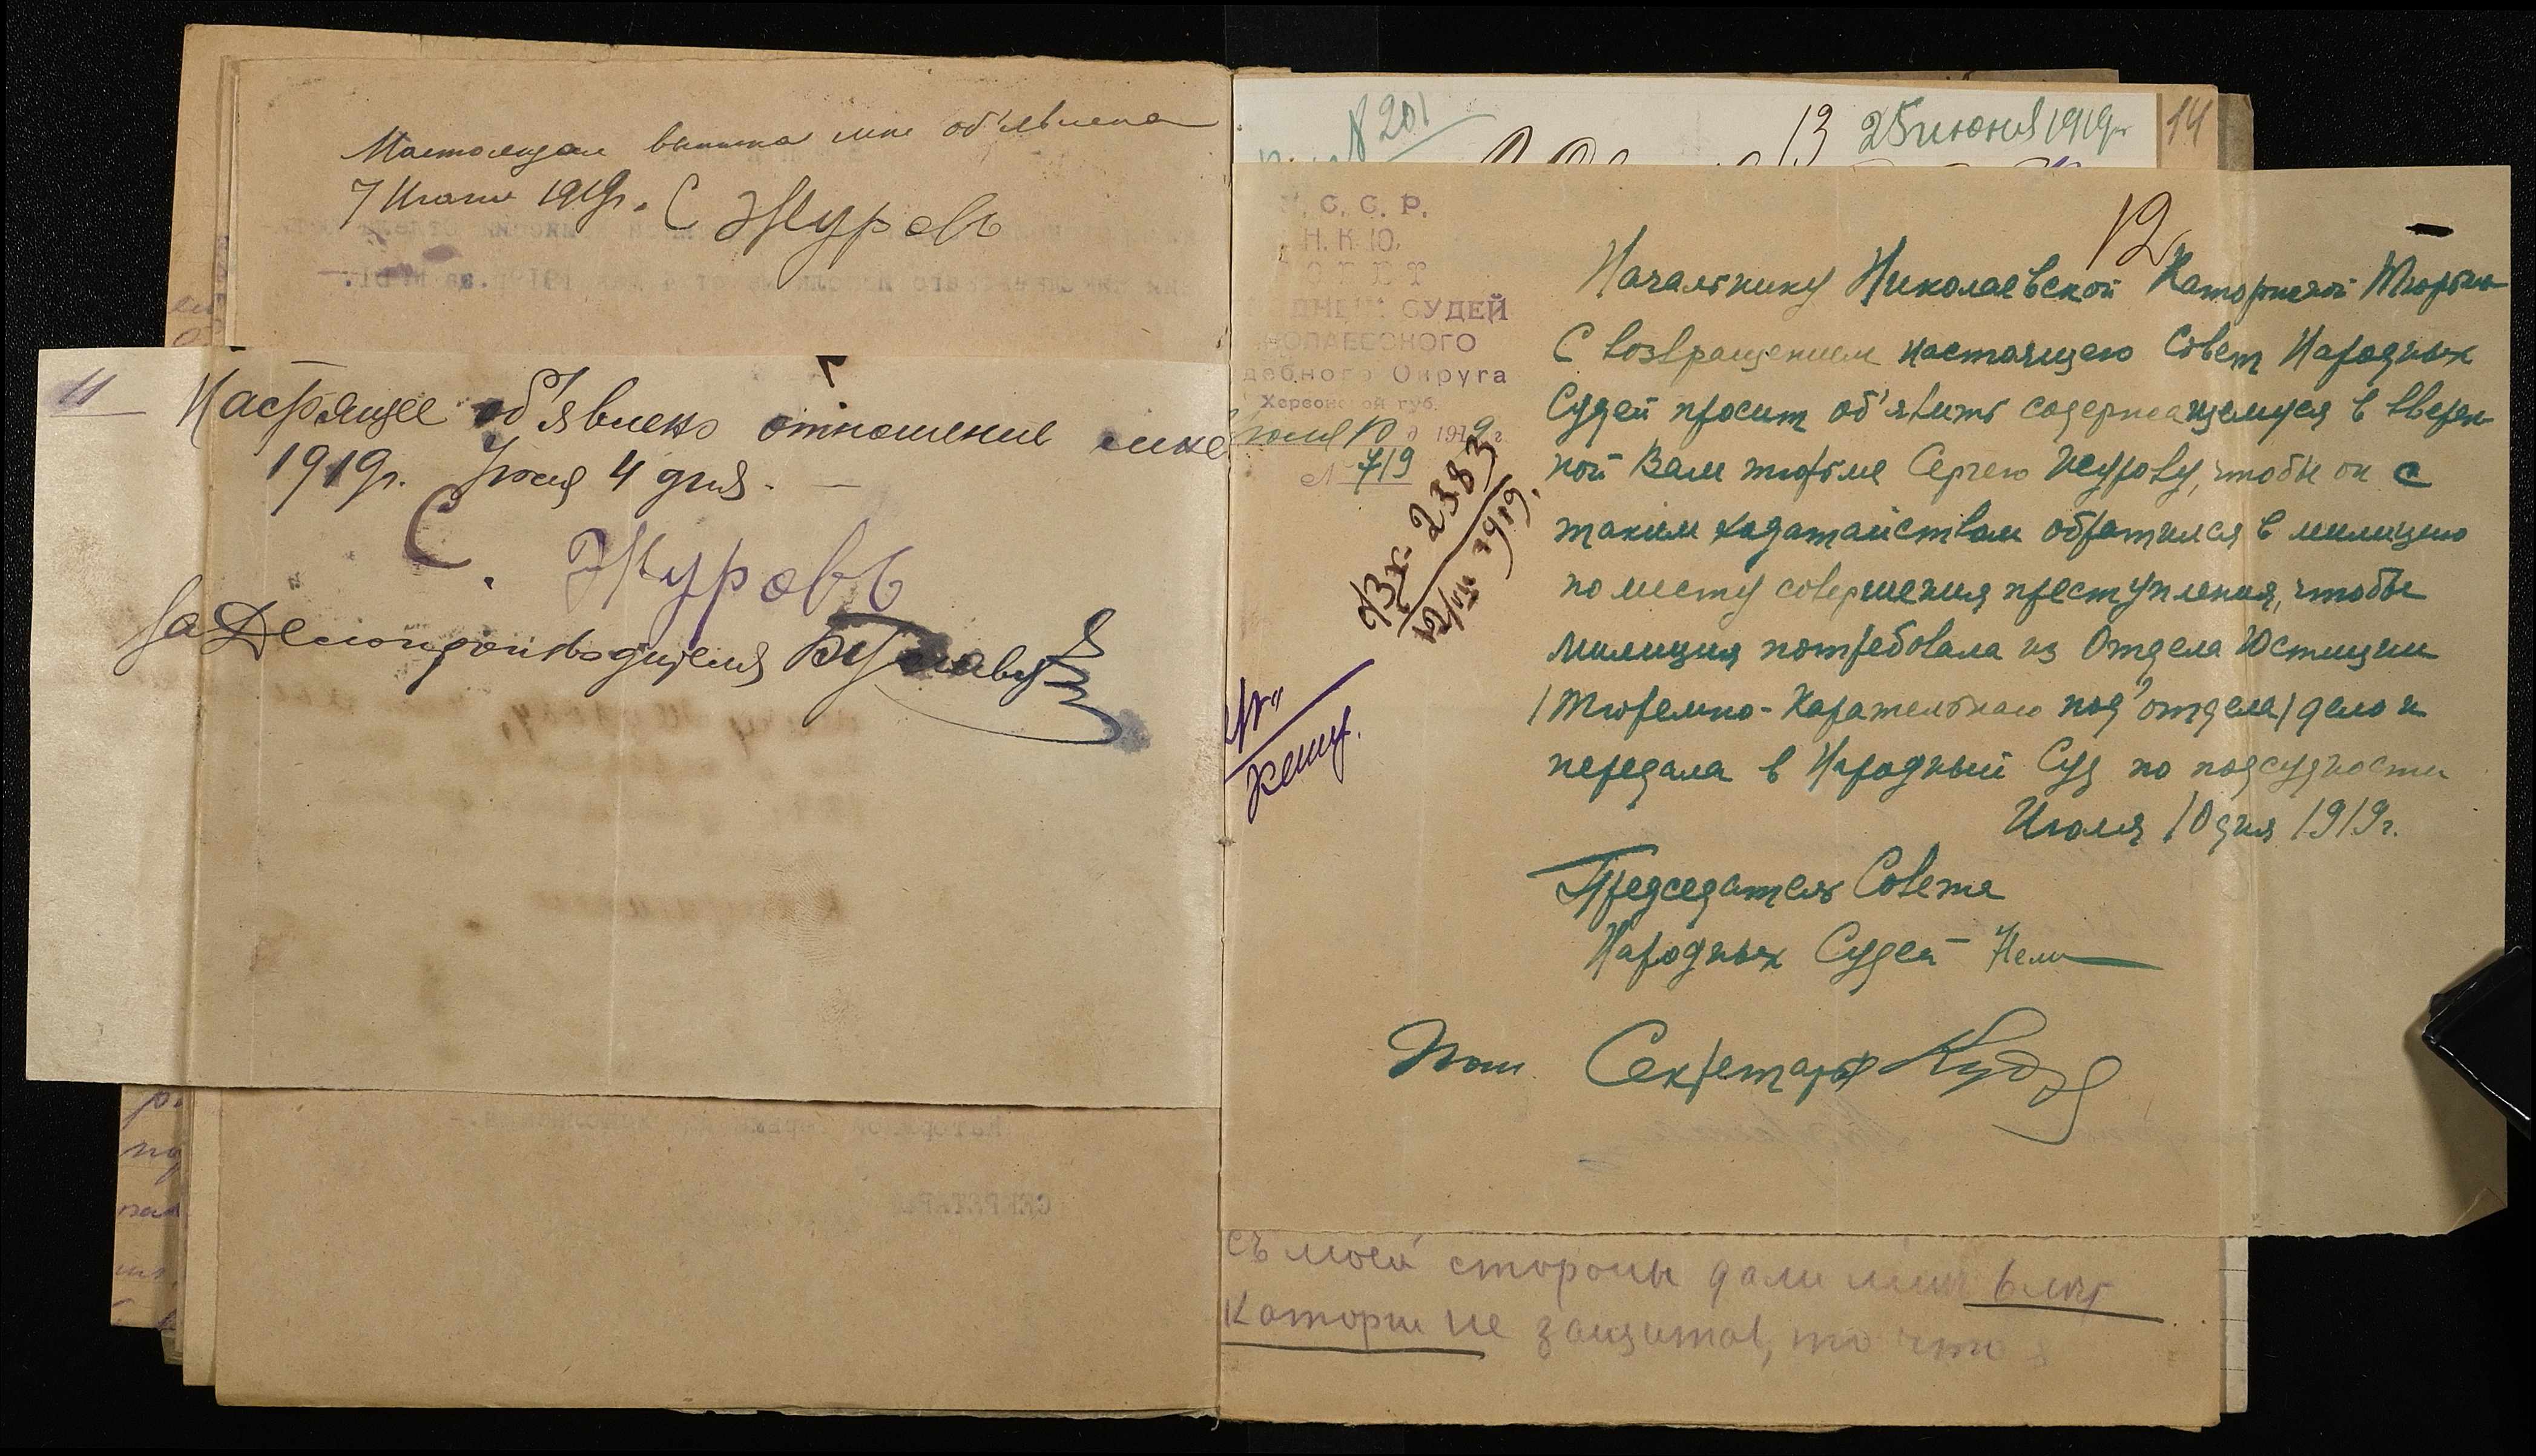 Настоящая выписка мне об'явлена
7 Июня 1919г. С Журовъ
11
Настоящее об'явлено отношение мне
1919г. Июня 4 дня.
С. Журовъ
За Делопроизводителя
№ 201
13
25 июня 1919г.
14
12
С. С. Р.
Н. К. Ю.
СУДЕЙ
Округа
Херсонской губ.
Июля 10 д 1919 г.
№ 719
Вх. 2383
12/VII 1919.
Начальнику Николаевской Каторжной Тюрьмы
С возвращением настоящего Совет Народных
Судей просит об'явить содержащемуся в вверен-
ной Вам тюрьме Сергею Журову, чтобы он с
таким ходатайством обратился в милицию
по месту совершения преступления, чтобы
милиция потребовала из Отдела Юстиции
/Тюремно-Карательного под'отдела/ дело и
передала в Народный Суд по подсудности
Июля 10 дня 1919г.
Председатель Совета
Народных Судей
Пом. Секретаря
съ моей стороны дали мне 6 лет
каторги не защитав, то что я